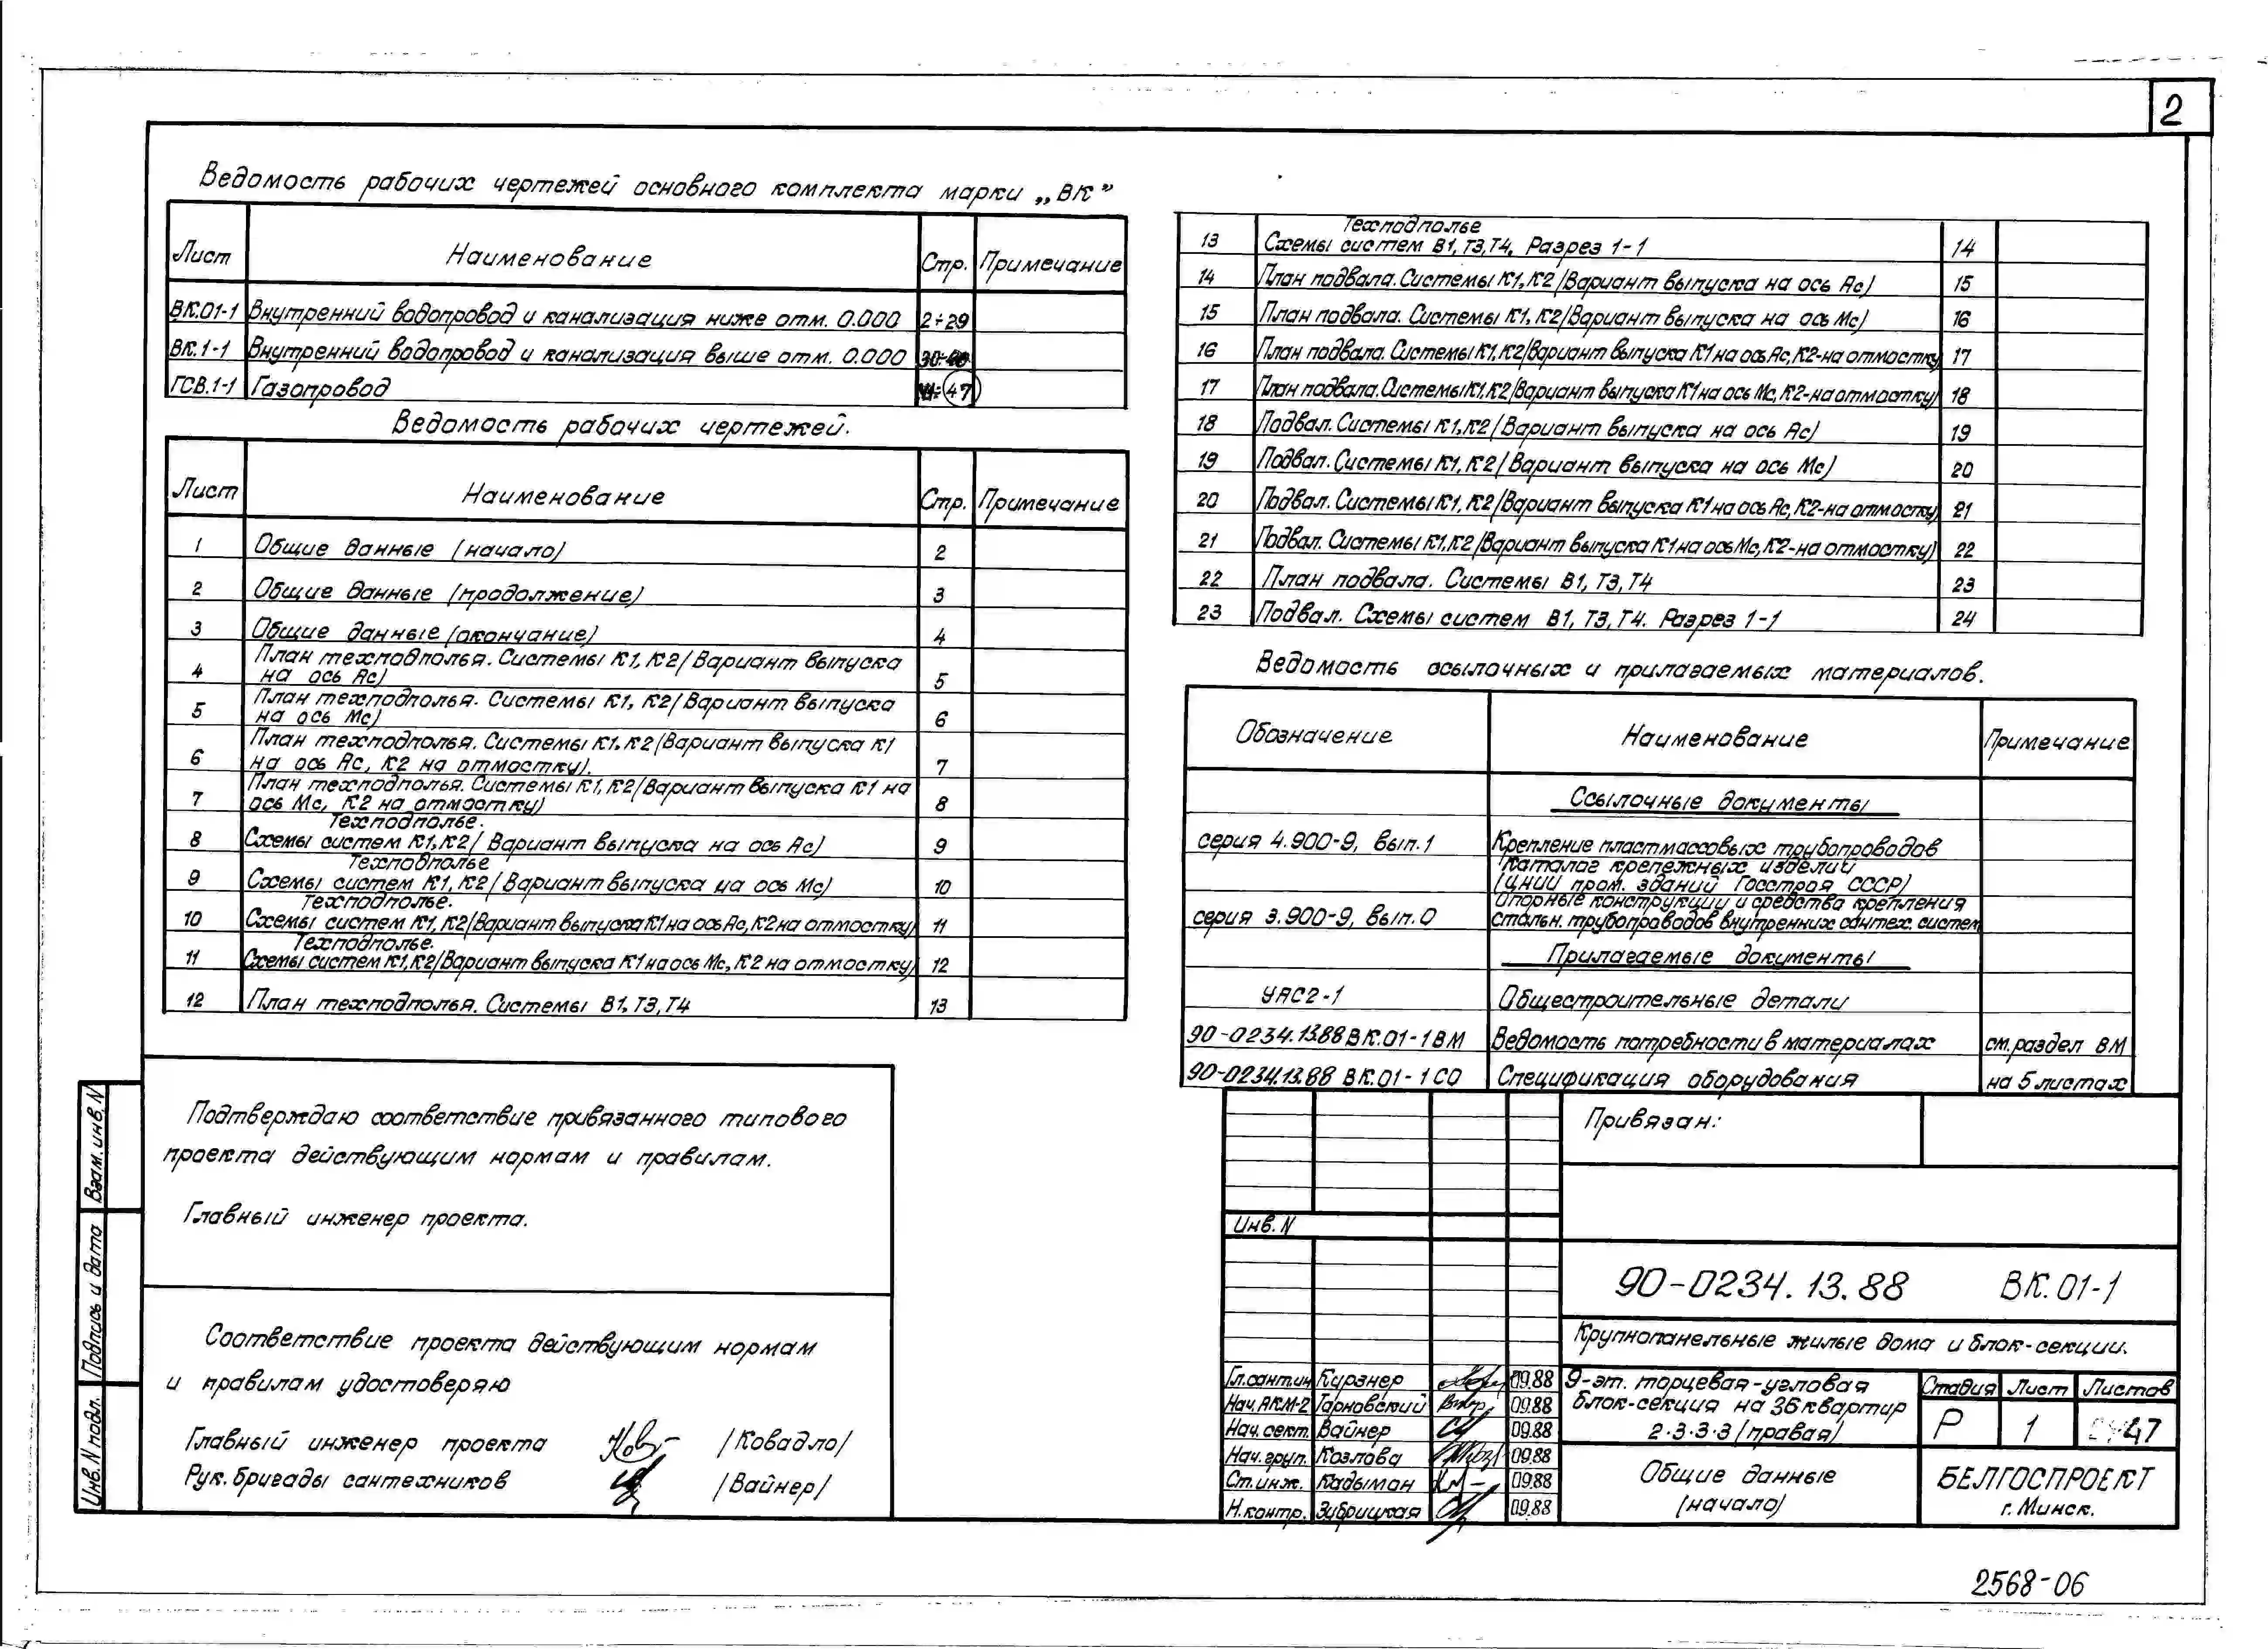 2
Ведомость рабочих чертежей основного комплекта марки „ВК”
Лист Наименование Стр. Примечание
ВК.01-1 Внутренний водопровод и канализация ниже отм. 0.000 2÷29
ВК.1-1 Внутренний водопровод и канализация выше отм. 0.000
ГСВ.1-1 Газопровод 47
Ведомость рабочих чертежей.
Лист Наименование Стр. Примечание
1 Общие данные (начало) 2
2 Общие данные (продолжение) 3
3 Общие данные (окончание) 4
План техподполья. Системы К1, К2 (Вариант выпуска
4 на ось Ас) 5
План техподполья. Системы К1, К2 (Вариант выпуска
5 на ось Мс) 6
План техподполья. Системы К1, К2 (Вариант выпуска К1
6 на ось Ас, К2 на отмостку). 7
План техподполья. Системы К1, К2 (Вариант выпуска К1 на
7 ось Мс, К2 на отмостку) 8
Техподполье.
8 Схемы систем К1, К2 (Вариант выпуска на ось Ас) 9
Техподполье
9 Схемы систем К1, К2 (Вариант выпуска на ось Мс) 10
Техподполье.
10 Схемы систем К1, К2 (Вариант выпуска К1 на ось Ас, К2 на отмостку) 11
Техподполье.
11 Схемы систем К1, К2 (Вариант выпуска К1 на ось Мс, К2 на отмостку) 12
12 План техподполья. Системы В1, Т3, Т4 13
Техподполье
13 Схемы систем В1, Т3, Т4. Разрез 1-1 14
14 План подвала. Системы К1, К2 (Вариант выпуска на ось Ас) 15
15 План подвала. Системы К1, К2 (Вариант выпуска на ось Мс) 16
16 План подвала. Системы К1, К2 (Вариант выпуска К1 на ось Ас, К2-на отмостку 17
17 План подвала. Системы К1, К2 (Вариант выпуска К1 на ось Мс, К2-на отмостку) 18
18 Подвал. Системы К1, К2 (Вариант выпуска на ось Ас) 19
19 Подвал. Системы К1, К2 (Вариант выпуска на ось Мс) 20
20 Подвал. Системы К1, К2 (Вариант выпуска К1 на ось Ас, К2-на отмостку) 21
21 Подвал. Системы К1, К2 (Вариант выпуска К1 на ось Мс, К2-на отмостку) 22
22 План подвала. Системы В1, Т3, Т4 23
23 Подвал. Схемы систем В1, Т3, Т4. Разрез 1-1 24
Ведомость ссылочных и прилагаемых материалов.
Обозначение Наименование Примечание
Ссылочные документы
серия 4.900-9, вып. 1 Крепление пластмассовых трубопроводов
Каталог крепежных изделий
(ЦНИИ пром. зданий Госстроя СССР)
Опорные конструкции и средства крепления
серия 3.900-9, вып. 0 стальн. трубопроводов внутренних сантех. систем
Прилагаемые документы
УАС2-1 Общестроительные детали
90-0234.13.88 ВК.01-1 ВМ Ведомость потребности в материалах см. раздел ВМ
90-0234.13.88 ВК.01-1 СО Спецификация оборудования на 5 листах
Подтверждаю соответствие привязанного типового
проекта действующим нормам и правилам.
Главный инженер проекта.
Соответствие проекта действующим нормам
и правилам удостоверяю
Главный инженер проекта /Ковадло/
Рук. бригады сантехников /Вайнер/
Взам. инв. N
Подпись и дата
Инв. N подл.
Привязан:
Инв. N
90-0234.13.88 ВК.01-1
Крупнопанельные жилые дома и блок-секции.
Гл. сантин Курзнер 09.88
Нач. АКМ-2 Тарновский 09.88
Нач. сект. Вайнер 09.88
Нач. груп. Козлова 09.88
Ст. инж. Кадыман 09.88
Н. контр. Зубрицкая 09.88
9-эт. торцевая-угловая
блок-секция на 36 квартир
2-3-3-3 (правая)
Стадия Лист Листов
Р 1 47
Общие данные
(начало)
БЕЛГОСПРОЕКТ
г. Минск.
2568-06